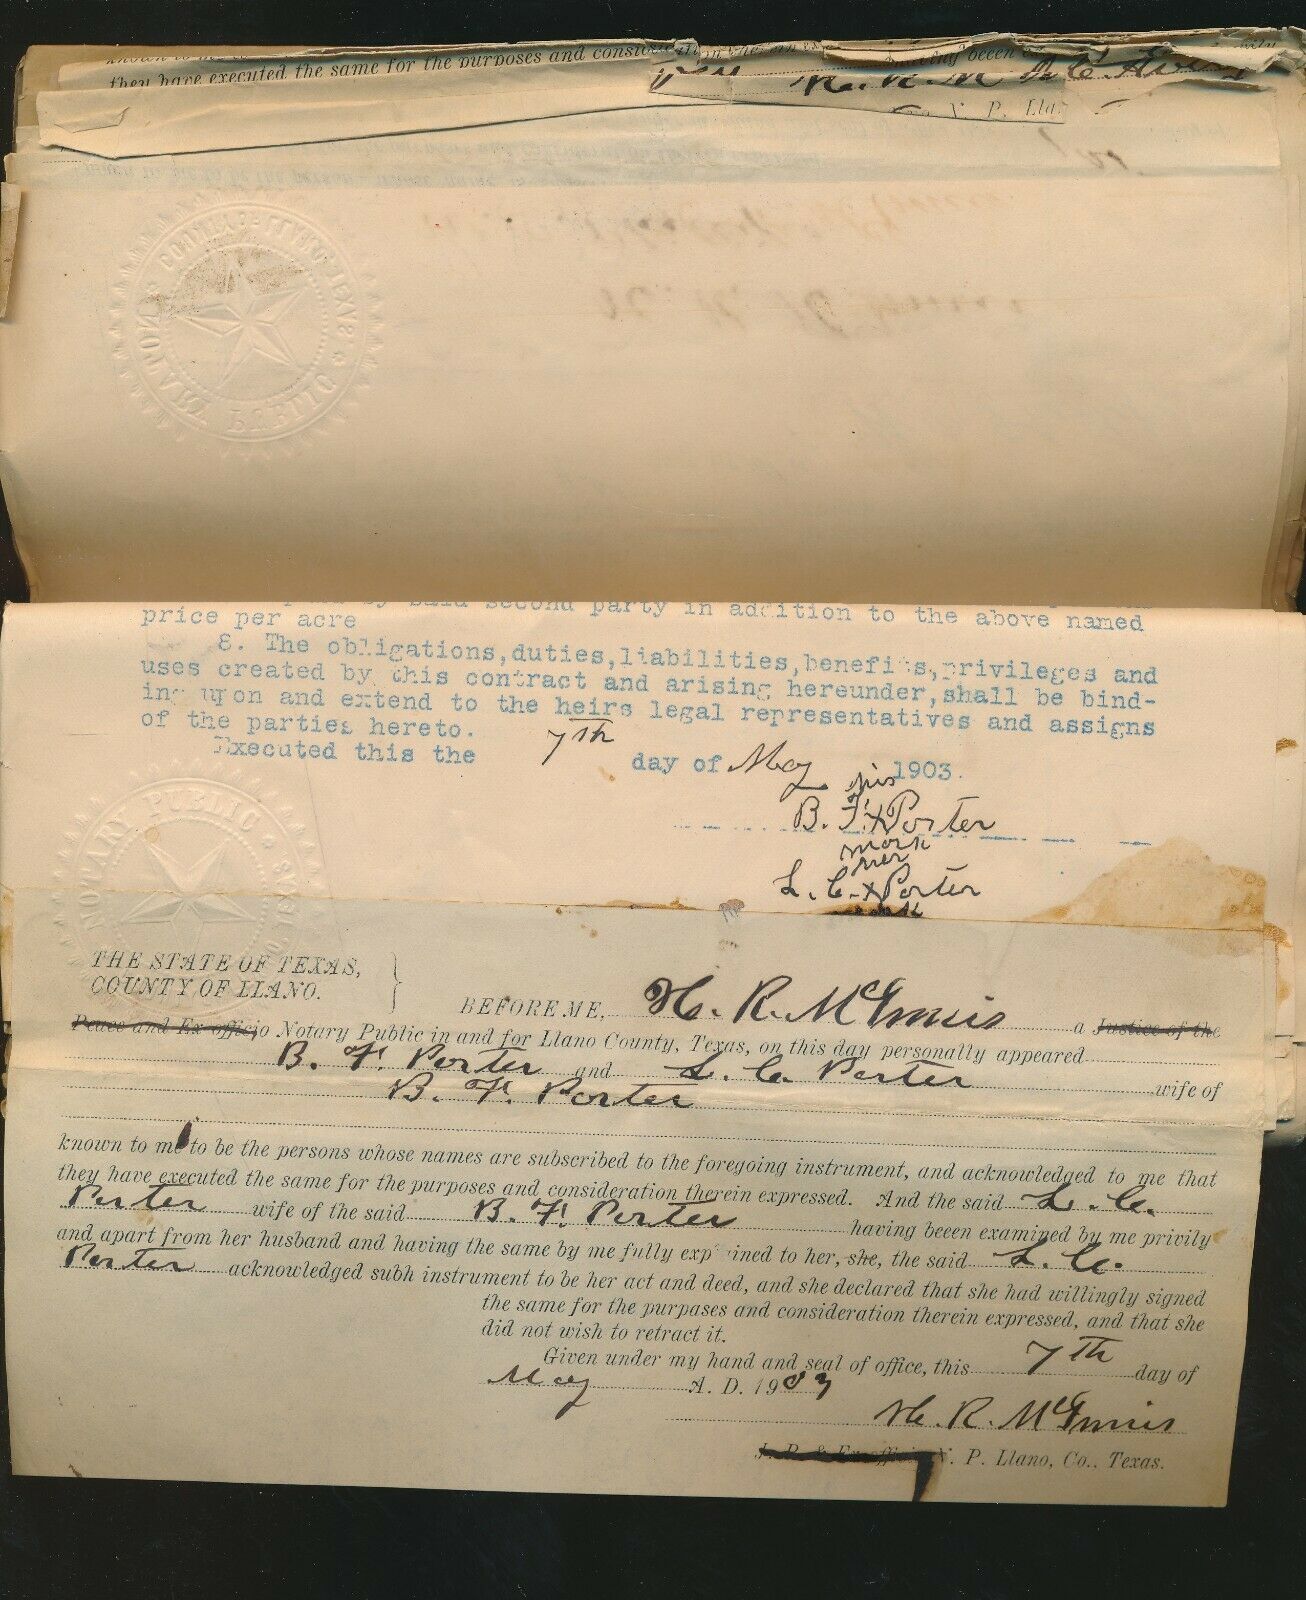 they have executed the same for the purposes and
N. P. Lla
NOTARY PUBLIC COUNTY OF LLANO TEXAS
by said second party in addition to the above named
price per acre
8. The obligations,duties,liabilities,benefits,privileges and
uses created by this contract and arising hereunder,shall be bind-
ing upon and extend to the heirs legal representatives and assigns
of the parties hereto.
Executed this the 7th day of May 1903.
his
B. F. x Porter
mark
her
L. C. x Porter
NOTARY PUBLIC
THE STATE OF TEXAS,
COUNTY OF LLANO.
BEFORE ME, H. R. McInnis a Justice of the
Peace and Ex-officio Notary Public in and for Llano County, Texas, on this day personally appeared
B. F. Porter and L. C. Porter wife of
B. F. Porter
known to me to be the persons whose names are subscribed to the foregoing instrument, and acknowledged to me that
they have executed the same for the purposes and consideration therein expressed. And the said L. C.
Porter wife of the said B. F. Porter having beeen examined by me privily
and apart from her husband and having the same by me fully explained to her, she, the said L. C.
Porter acknowledged subh instrument to be her act and deed, and she declared that she had willingly signed
the same for the purpases and consideration therein expressed, and that she
did not wish to retract it.
Given under my hand and seal of office, this 7th day of
May A. D. 1903
H. R. McInnis
J. P. & Ex-officio N. P. Llano, Co., Texas.